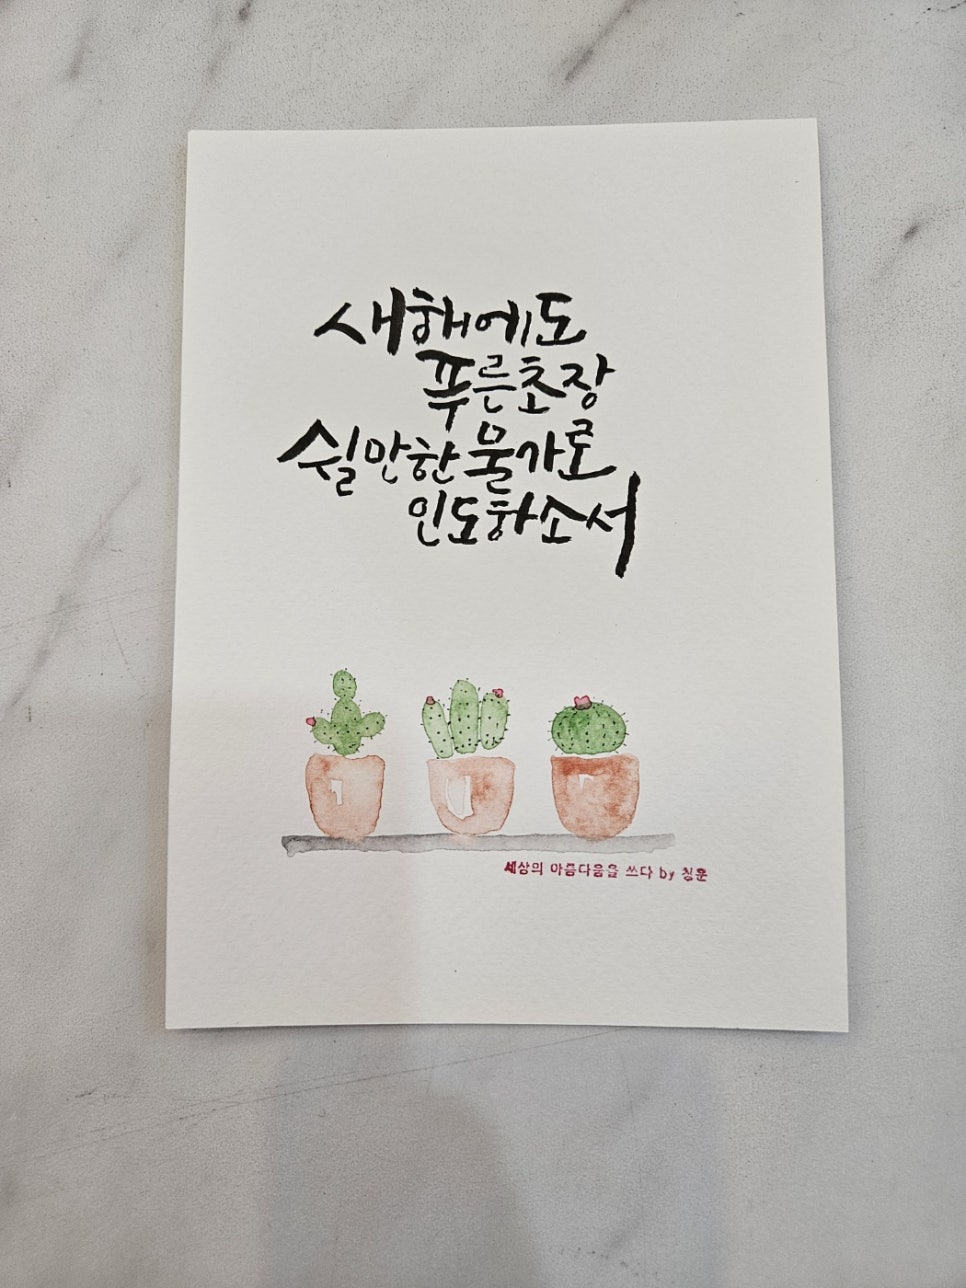 새해에도
푸른초장
쉴만한물가로
인도하소서
세상의 아름다움을 쓰다 by 칭훈